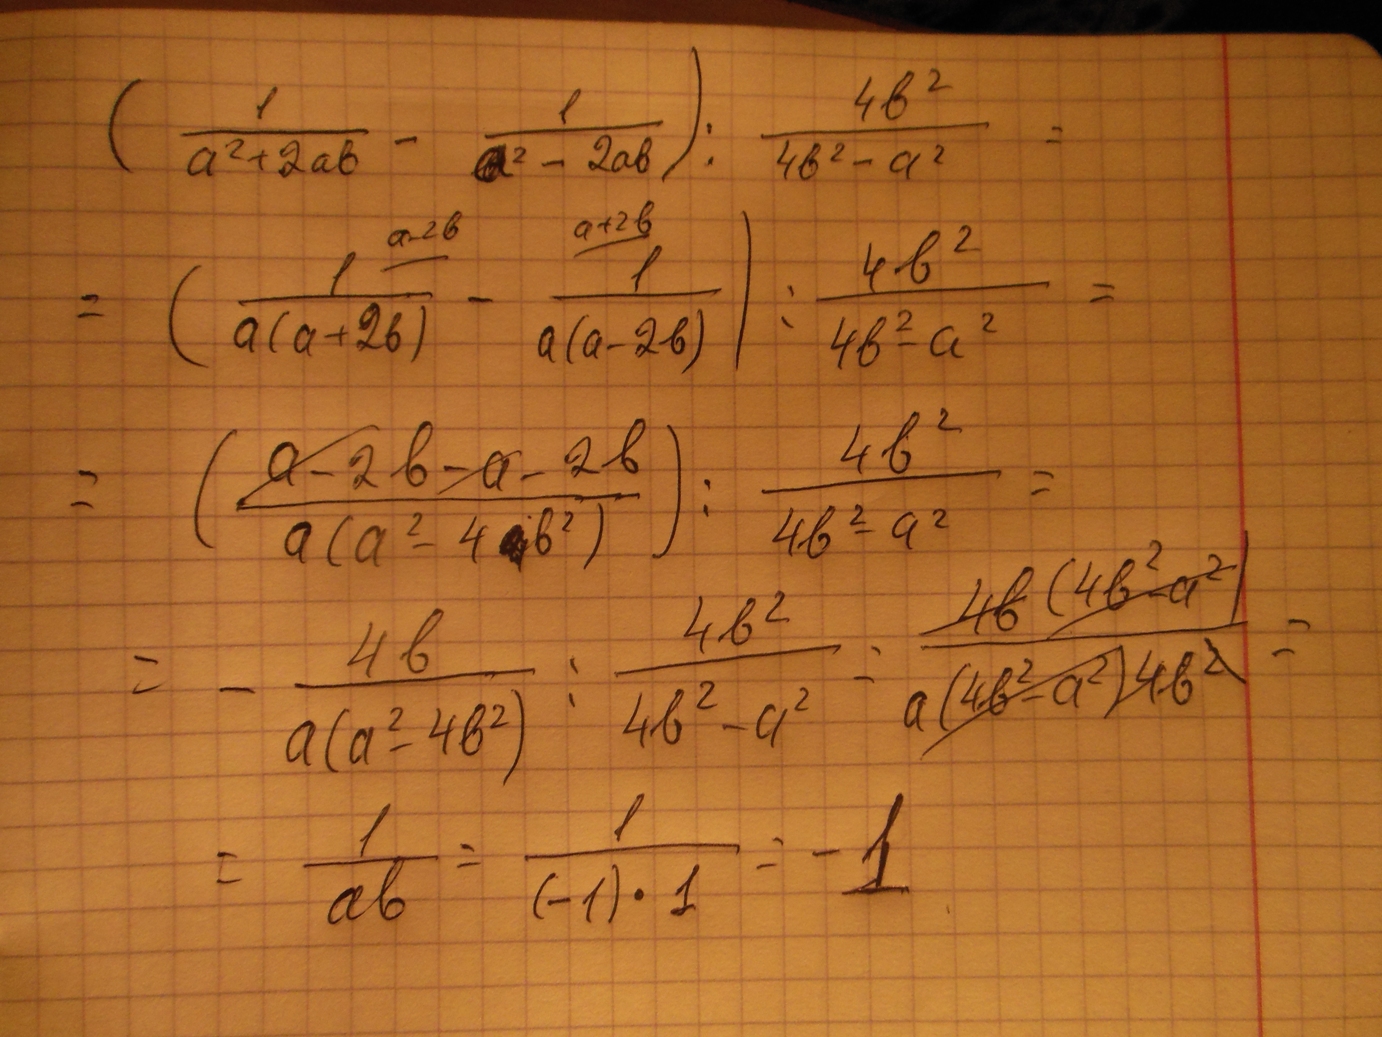 (1/(a²+2ab) - 1/(a²-2ab)) : 4b²/(4b²-a²) =
a-2b a+2b
= (1/(a(a+2b)) - 1/(a(a-2b))) : 4b²/(4b²-a²) =
= ((a-2b-a-2b)/(a(a²-4b²))) : 4b²/(4b²-a²) =
= - 4b/(a(a²-4b²)) : 4b²/(4b²-a²) = 4b(4b²-a²)/(a(4b²-a²)4b²) =
= 1/(ab) = 1/((-1)·1) = -1